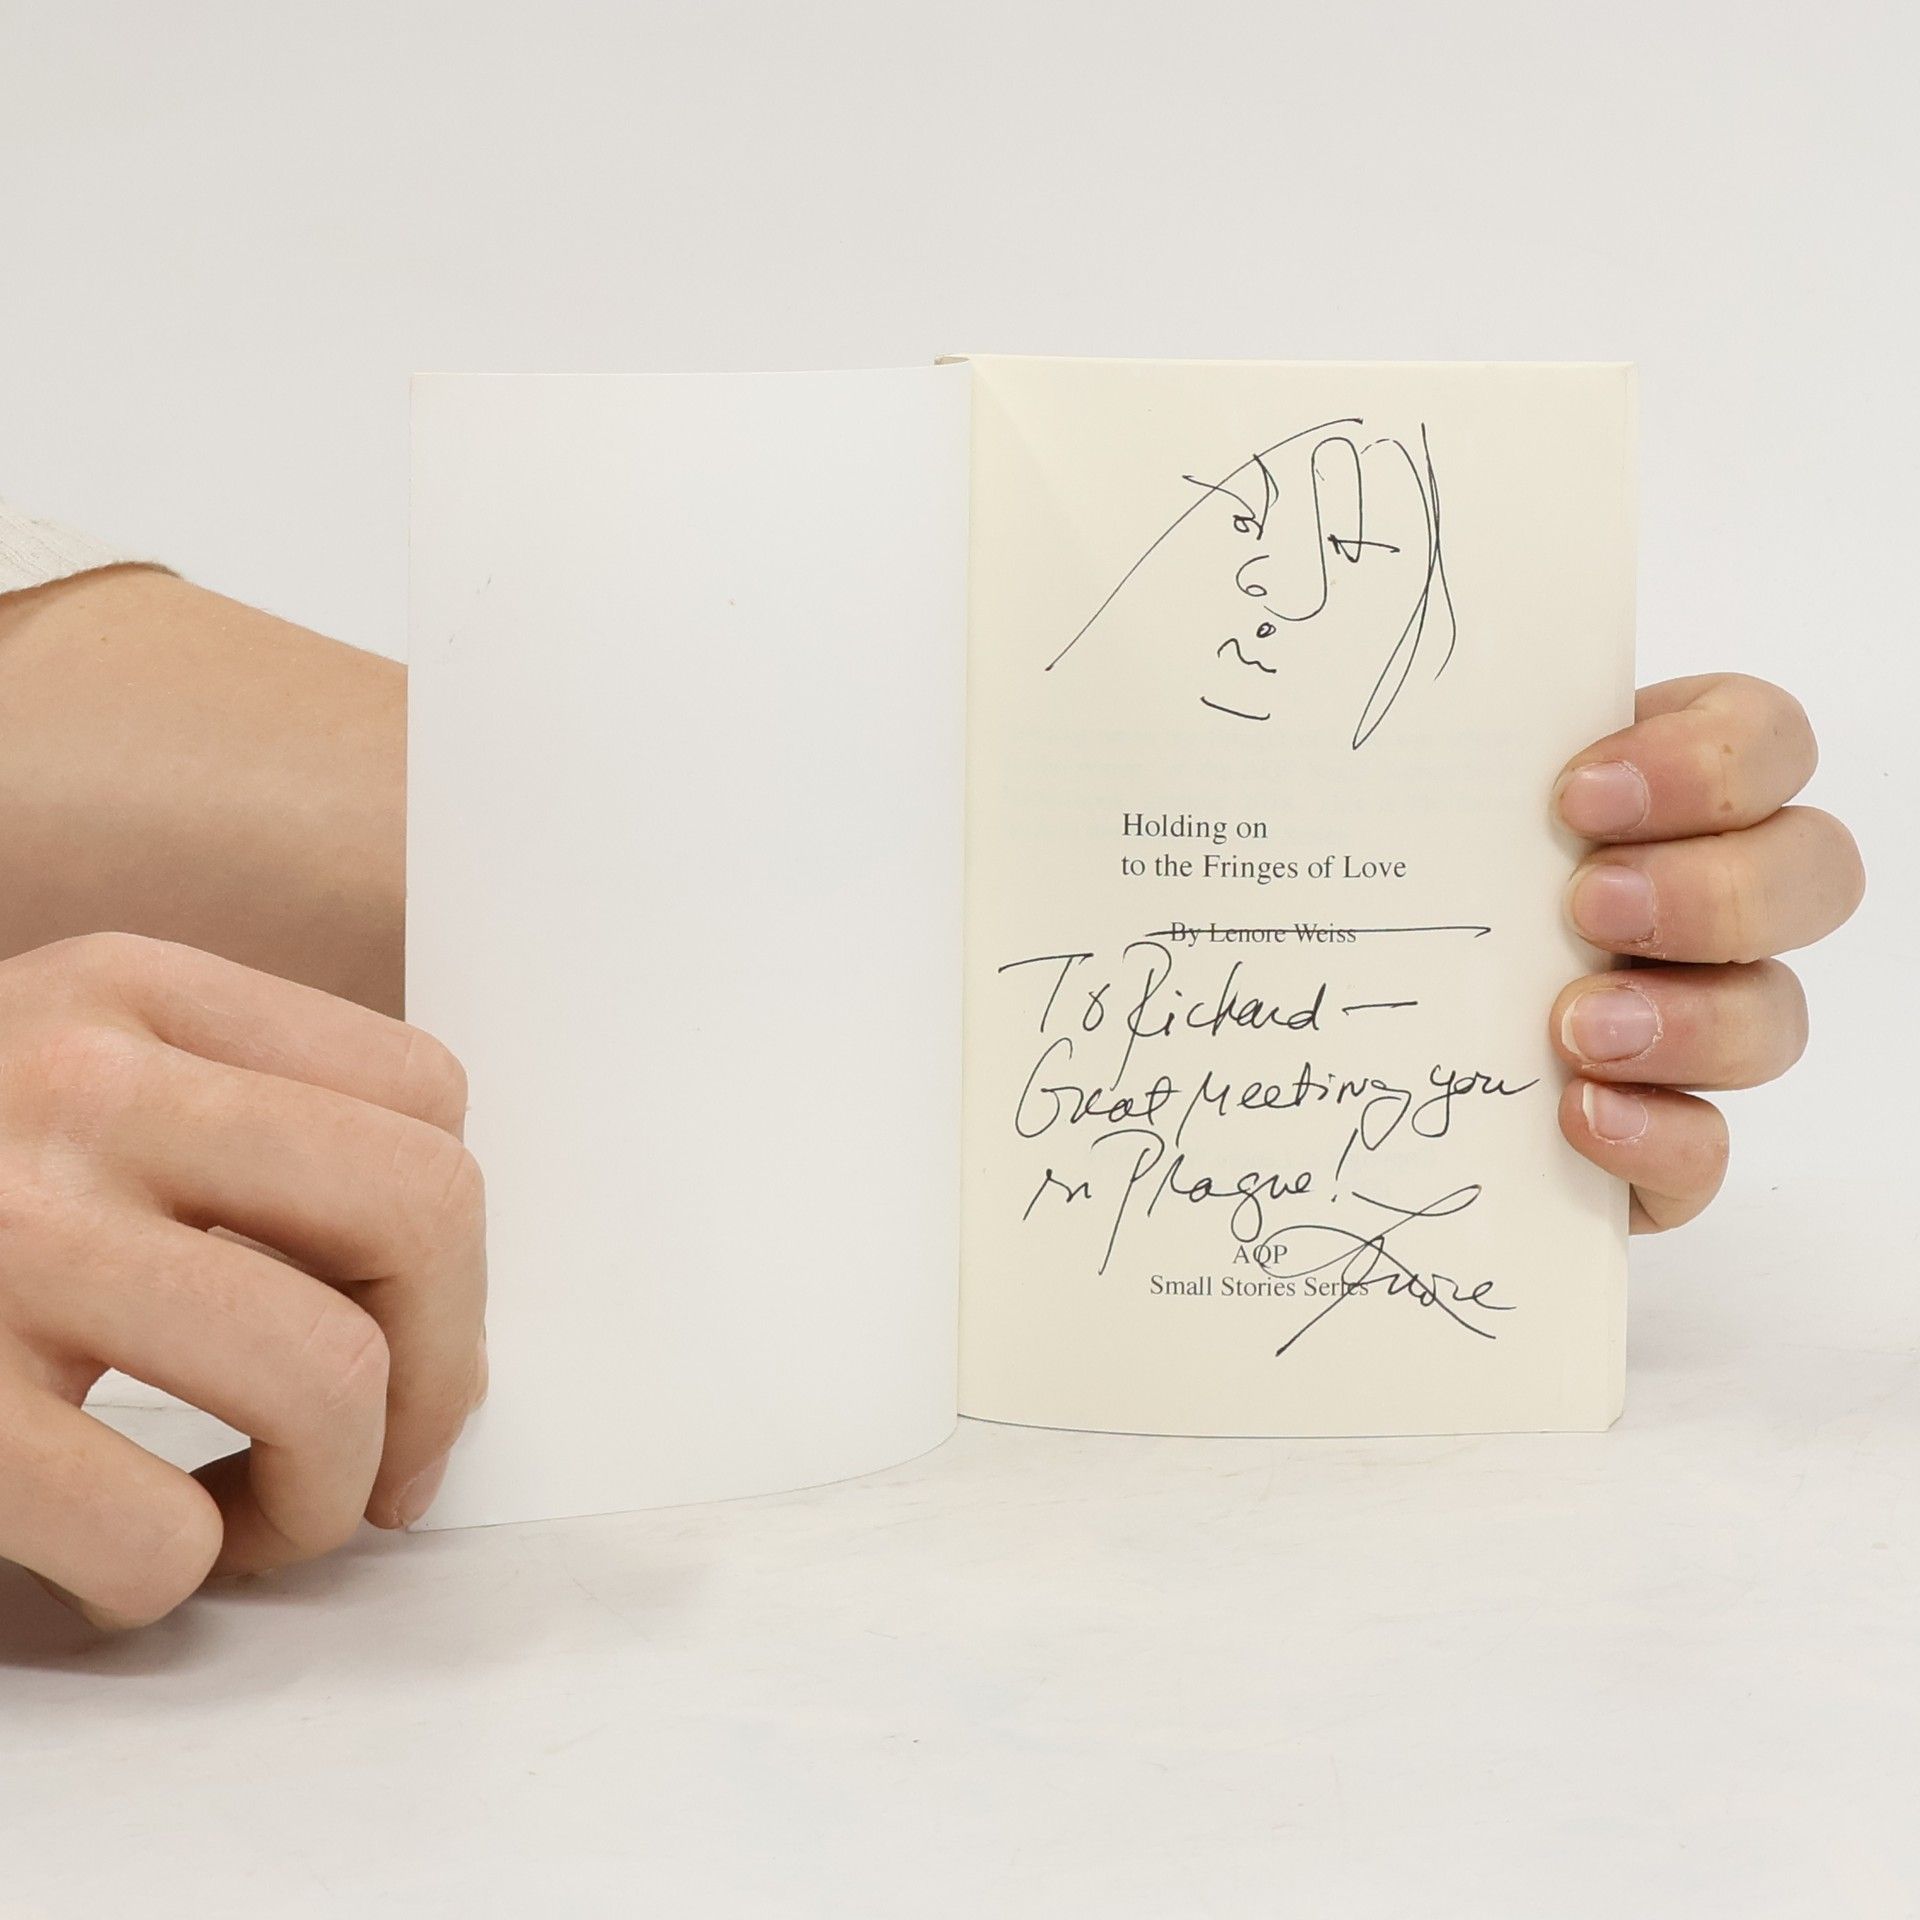 Holding on
to the Fringes of Love
By Lenore Weiss
To Richard —
Great Meeting you
in Prague!
Lenore
AQP
Small Stories Series